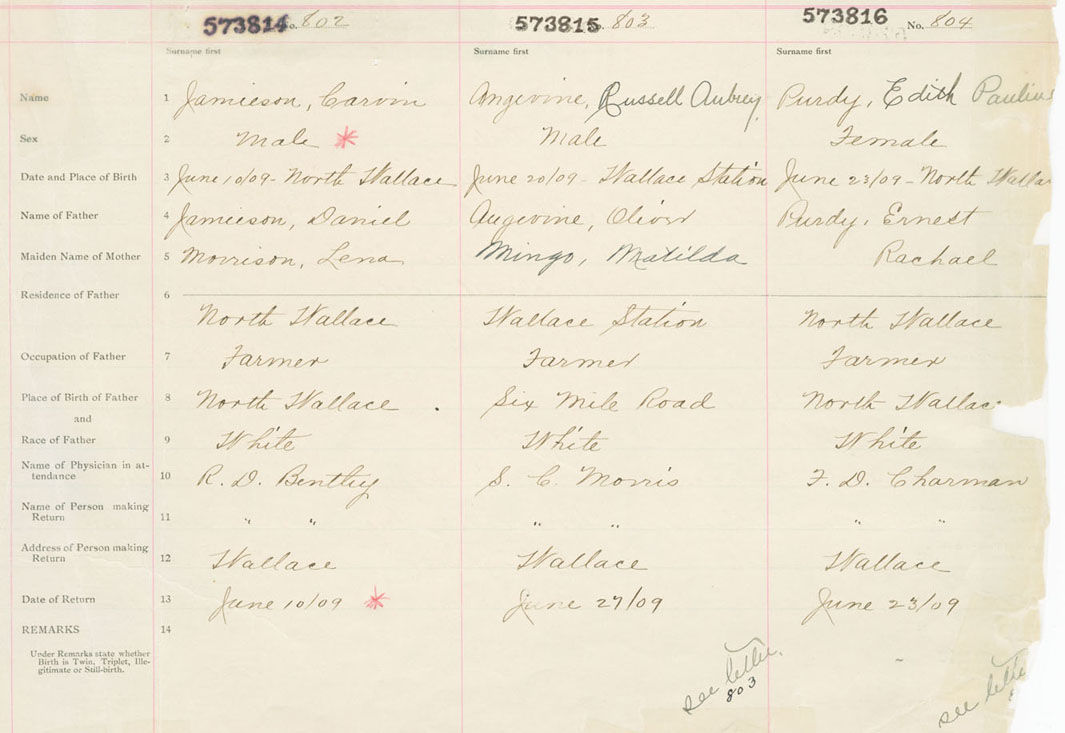 573814 No. 802 573815 No. 803 573816 No. 804
Surname first Surname first Surname first
Name 1 Jamieson, Carvin Angevine, Russell Aubrey Purdy, Edith Pauline
Sex 2 Male * Male Female
Date and Place of Birth 3 June 10/09 - North Wallace June 20/09 - Wallace Station June 23/09 - North Walla
Name of Father 4 Jamieson, Daniel Angevine, Oliver Purdy, Ernest
Maiden Name of Mother 5 Morrison, Lena Mingo, Matilda Rachael
Residence of Father 6
North Wallace Wallace Station North Wallace
Occupation of Father 7 Farmer Farmer Farmer
Place of Birth of Father 8 North Wallace . Six Mile Road North Wallac
and
Race of Father 9 White White White
Name of Physician in at-
tendance 10 R. D. Bentley S. C. Morris F. D. Charman
Name of Person making
Return 11 " " " " " "
Address of Person making
Return 12 Wallace Wallace Wallace
Date of Return 13 June 10/09 * June 27/09 June 23/09
REMARKS 14
Under Remarks state whether
Birth is Twin, Triplet, Ille-
gitimate or Still-birth.
see letter. see lette
803 8